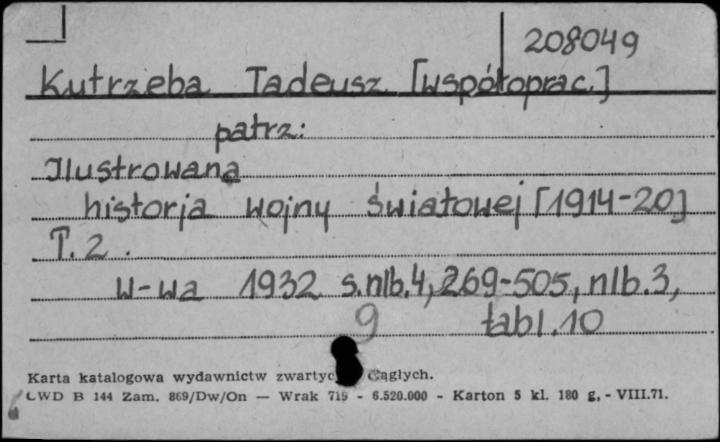 208049
Kutrzeba Tadeusz [współoprac.]
patrz:
Ilustrowana
historja wojny światowej [1914-20]
T. 2.
W-wa 1932 s. nlb. 4, 269-505, nlb. 3,
9 tabl. 10
Karta katalogowa wydawnictw zwartyc ciągłych.
CWD B 144 Zam. 869/Dw/On — Wrak 715 - 6.520.000 - Karton 5 kl. 180 g. - VIII.71.